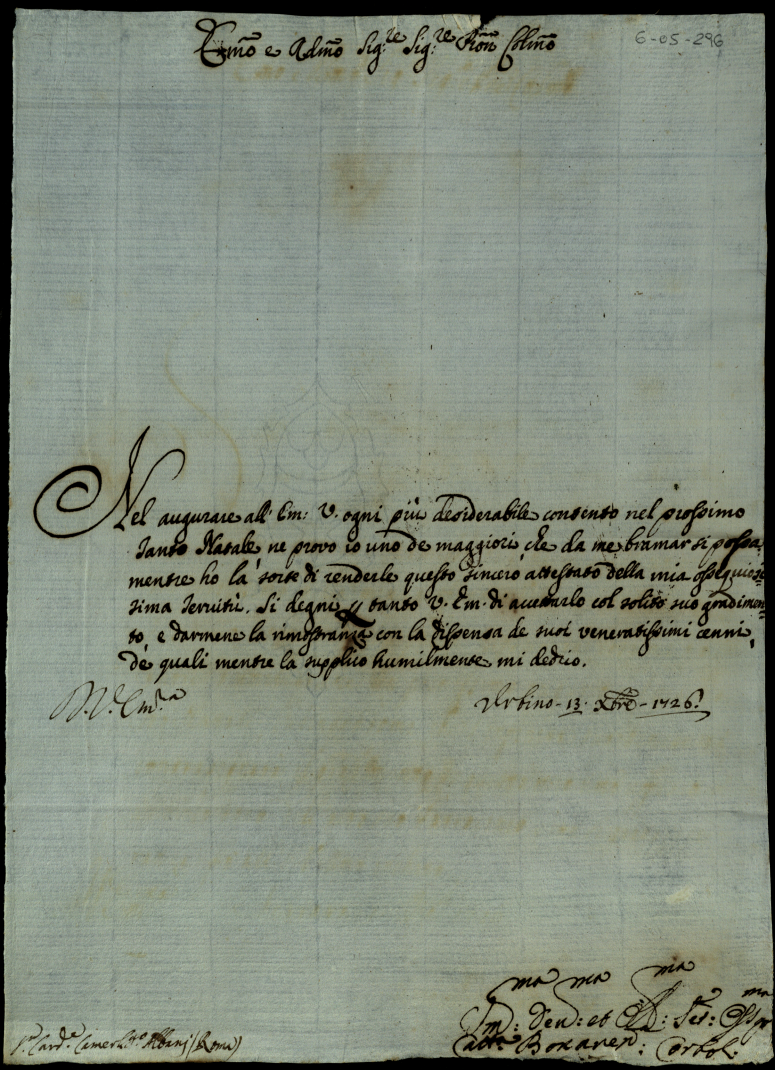 6-05-296
Em̃o e Rdm̃o Sig.re Sig.re Pron̄ Colm̃o
Nel augurare all' Em: V. ogni più desiderabile contento nel prossimo
Santo Natale ne provo io uno de maggiori, che da me bramar si possa,
mentre ho la sorte di renderle questo sincero attestato della mia ossequiosis-
sima servitù. Si degni tanto V. Em. di accettarlo col solito suo gradimen-
to, e darmene la rimostranza con la dispensa de suoi veneratissimi cenni,
de quali mentre la supplico humilmente mi dedico.
D. V. Em.a
Urbino - 13. Xbre - 1726.
ma ma ma ma
Dev: et Ser:
Bonaven: Corbol:
Card.e Camerl.go Albani (Roma)